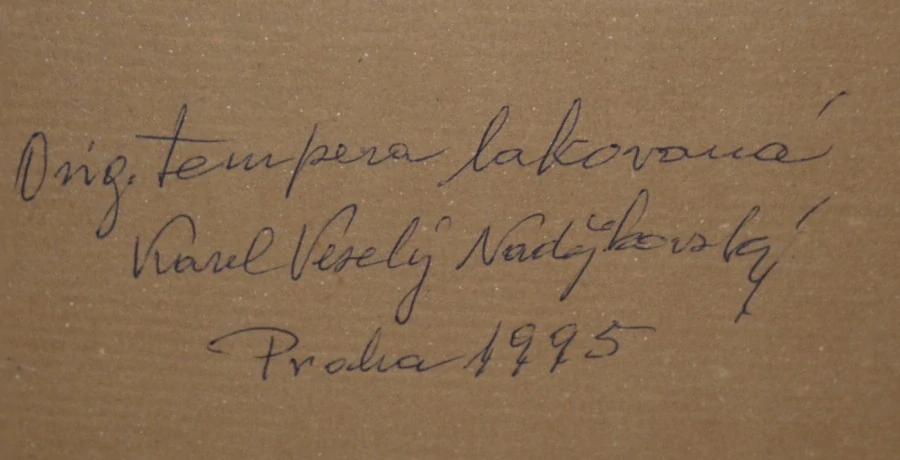 Orig. tempera lakovaná
Karel Veselý Nadýkovský
Praha 1995